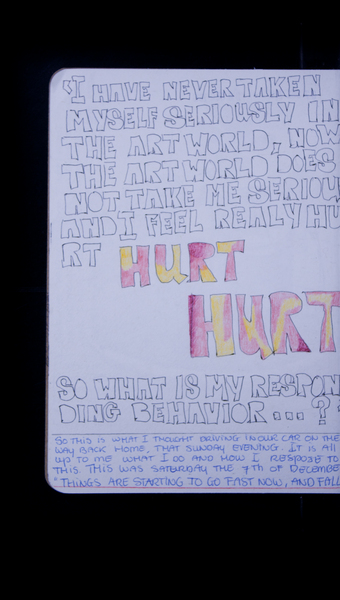 "I HAVE NEVER TAKEN
MYSELF SERIOUSLY IN
THE ART WORLD, NOW
THE ART WORLD DOES
NOT TAKE ME SERIOU
AND I FEEL REALY HU
RT HURT
HURT
SO WHAT IS MY RESPON
DING BEHAVIOR...?
SO THIS IS WHAT I THOUGHT DRIVING IN OUR CAR ON THE
WAY BACK HOME, THAT SUNDAY EVENING. IT IS All
UP TO ME WHAT I DO AND HOW I RESPOSE TO
THIS THIS WAS SATURDAY THE 7TH OF DECEMBE
"THINGS ARE STARTING TO GO FAST NOW, AND FALL